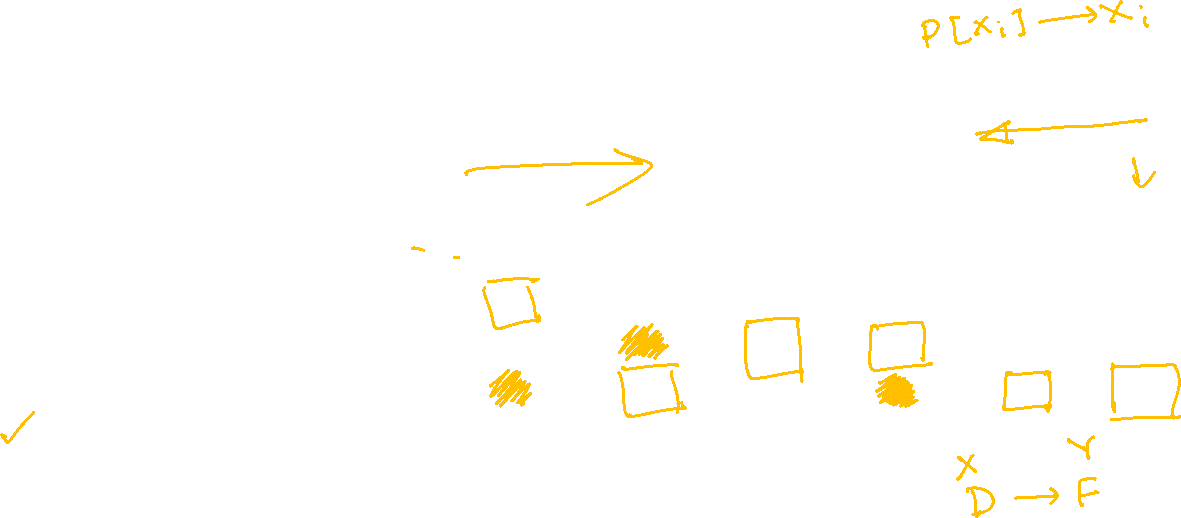 P[Xi] → Xi
X Y
D → F